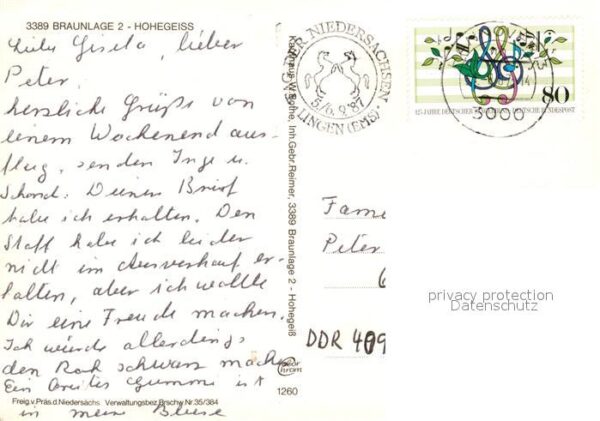 3389 BRAUNLAGE 2 - HOHEGEISS
Liebe Gisela, lieber
Peter,
herzliche Grüße von
einem Wochenendaus-
flug, senden Inge u.
Deinen Brief
habe ich erhalten. Den
Stoff habe ich leider
nicht im Ausverkauf er-
halten, aber ich wollte
Dir eine Freude machen.
Ich würde allerdings
den Rock schwarz mach
Ein breites Gummi ist
in meine Bluse
Freig. v. Präs. d. Niedersächs. Verwaltungsbez. Brschw. Nr. 35/384
Kaufhaus W. Bothe, Inh. Gebr. Reimer, 3389 Braunlage 2 - Hohegeiß
1260
DER NIEDERSACHSEN
5./6.9.'87
LINGEN (EMS)
3000
80
125 JAHRE DEUTSCHER
DEUTSCHE BUNDESPOST
Fame
Peter
DDR 409
privacy protection
Datenschutz